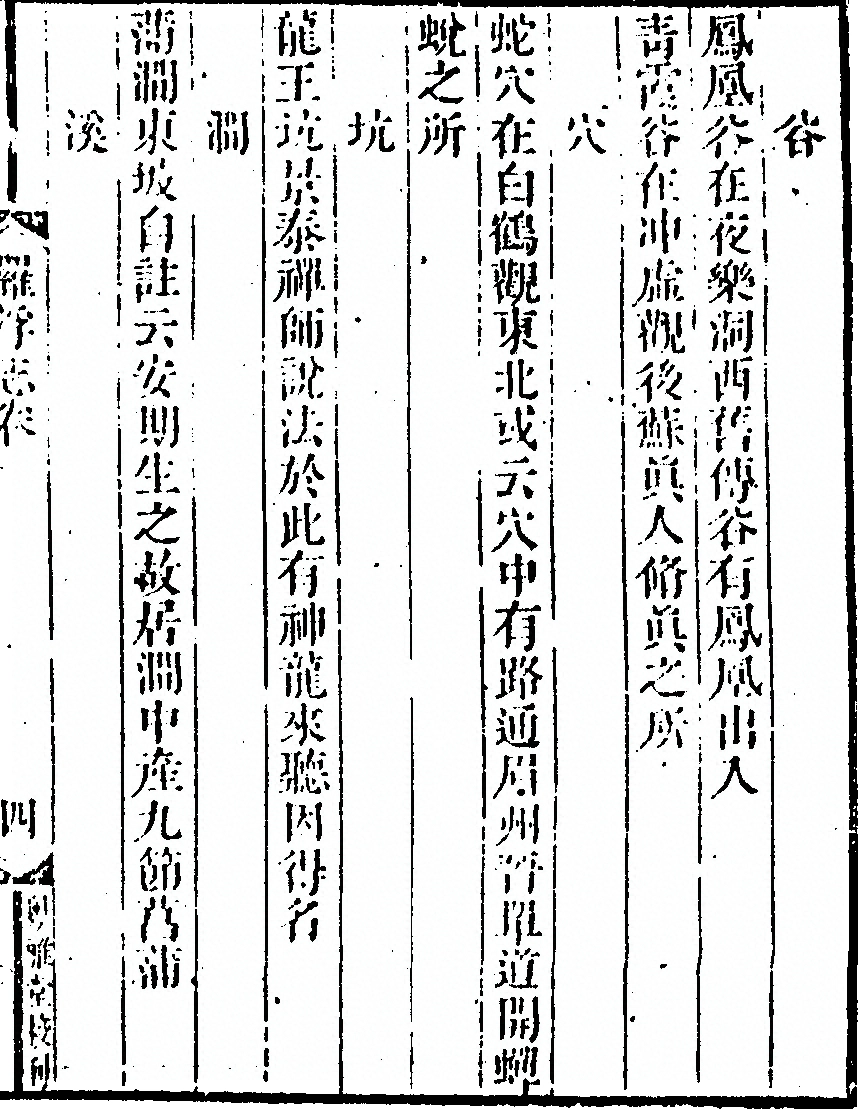 谷
鳳凰谷在夜樂洞西舊傳谷有鳳凰出入
青霞谷在冲虛觀後蘇眞人脩眞之所
穴
蛇穴在白鶴觀東北或云穴中有路通眉州晉單道開蟬
蛻之所
坑
龍王坑景泰禪師說法於此有神龍來聽因得名
澗
菖澗東坡自註云安期生之故居澗中產九節菖蒲
溪
羅浮志卷
四
粤雅堂校刊